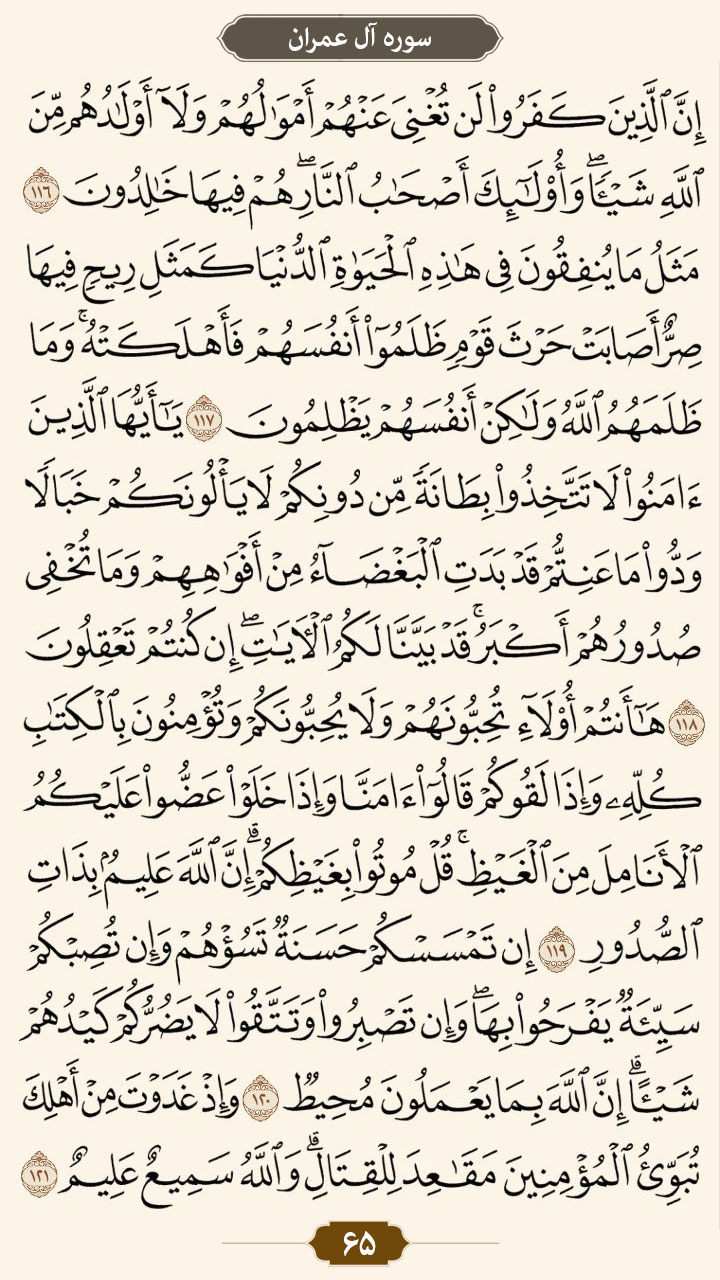 سوره آل عمران
إِنَّ ٱلَّذِينَ كَفَرُواْ لَن تُغْنِىَ عَنْهُمْ أَمْوَٰلُهُمْ وَلَآ أَوْلَـٰدُهُم مِّنَ
ٱللَّهِ شَيْـًٔاۖ وَأُوْلَـٰٓئِكَ أَصْحَـٰبُ ٱلنَّارِۖ هُمْ فِيهَا خَـٰلِدُونَ ١١٦
مَثَلُ مَا يُنفِقُونَ فِى هَـٰذِهِ ٱلْحَيَوٰةِ ٱلدُّنْيَا كَمَثَلِ رِيحٍ فِيهَا
صِرٌّ أَصَابَتْ حَرْثَ قَوْمٍ ظَلَمُوٓاْ أَنفُسَهُمْ فَأَهْلَكَتْهُۚ وَمَا
ظَلَمَهُمُ ٱللَّهُ وَلَـٰكِنْ أَنفُسَهُمْ يَظْلِمُونَ ١١٧ يَـٰٓأَيُّهَا ٱلَّذِينَ
ءَامَنُواْ لَا تَتَّخِذُواْ بِطَانَةً مِّن دُونِكُمْ لَا يَأْلُونَكُمْ خَبَالًا
وَدُّواْ مَا عَنِتُّمْ قَدْ بَدَتِ ٱلْبَغْضَآءُ مِنْ أَفْوَٰهِهِمْ وَمَا تُخْفِى
صُدُورُهُمْ أَكْبَرُۚ قَدْ بَيَّنَّا لَكُمُ ٱلْـَٔايَـٰتِۖ إِن كُنتُمْ تَعْقِلُونَ
١١٨ هَـٰٓأَنتُمْ أُوْلَآءِ تُحِبُّونَهُمْ وَلَا يُحِبُّونَكُمْ وَتُؤْمِنُونَ بِٱلْكِتَـٰبِ
كُلِّهِۦ وَإِذَا لَقُوكُمْ قَالُوٓاْ ءَامَنَّا وَإِذَا خَلَوْاْ عَضُّواْ عَلَيْكُمُ
ٱلْأَنَامِلَ مِنَ ٱلْغَيْظِۚ قُلْ مُوتُواْ بِغَيْظِكُمْۗ إِنَّ ٱللَّهَ عَلِيمٌۢ بِذَاتِ
ٱلصُّدُورِ ١١٩ إِن تَمْسَسْكُمْ حَسَنَةٌ تَسُؤْهُمْ وَإِن تُصِبْكُمْ
سَيِّئَةٌ يَفْرَحُواْ بِهَاۖ وَإِن تَصْبِرُواْ وَتَتَّقُواْ لَا يَضُرُّكُمْ كَيْدُهُمْ
شَيْـًٔاۗ إِنَّ ٱللَّهَ بِمَا يَعْمَلُونَ مُحِيطٌ ١٢٠ وَإِذْ غَدَوْتَ مِنْ أَهْلِكَ
تُبَوِّئُ ٱلْمُؤْمِنِينَ مَقَـٰعِدَ لِلْقِتَالِۗ وَٱللَّهُ سَمِيعٌ عَلِيمٌ ١٢١
۶۵